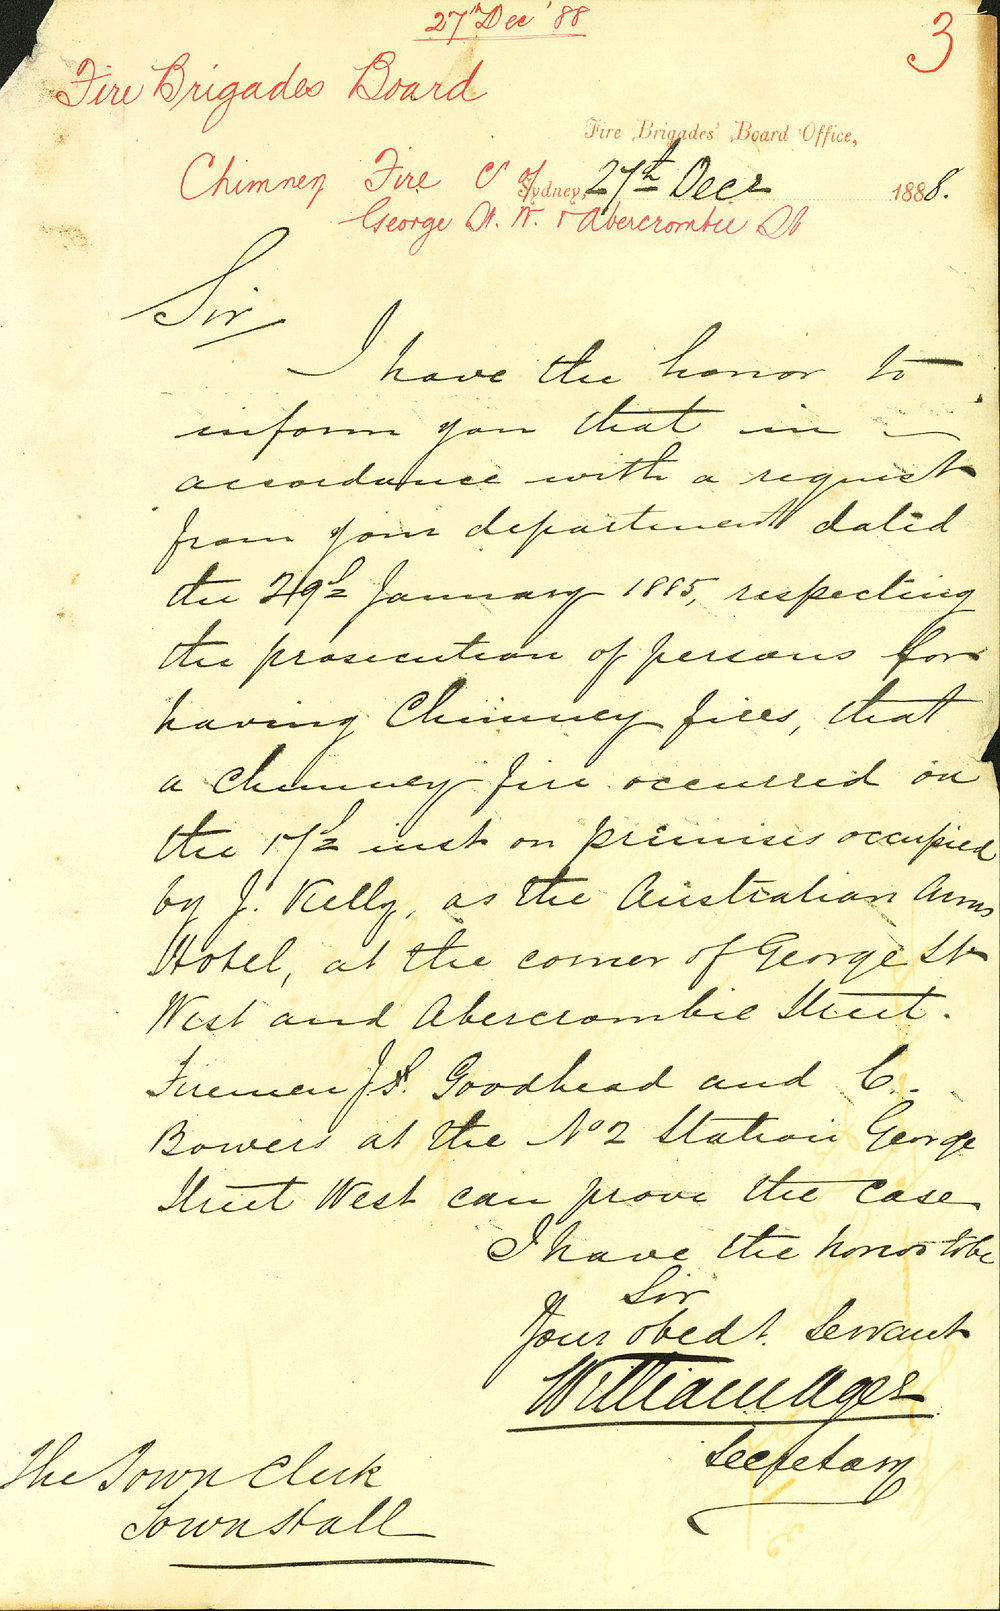 27th Dec '88
3
Fire Brigades Board
Fire Brigades' Board Office,
Chimney Fire C of
Sydney, 27th Decr 1888.
George St. W. & Abercrombie St
Sir
I have the honor to
inform you that in
accordance with a request
from your department dated
the 29th January 1885, respecting
the prosecution of persons for
having Chimney fires, that
a Chimney fire occurred on
the 17th inst on premises occupied
by J. Kelly, as the Australian Arms
Hotel, at the corner of George St
West and Abercrombie Street.
Firemen J. Goodhead and C.
Bowers at the No 2 Station George
Street West can prove the case
I have the honor to be
Sir
Your obedt. Servant
William Ager
Secretary
The Town Clerk
Town Hall